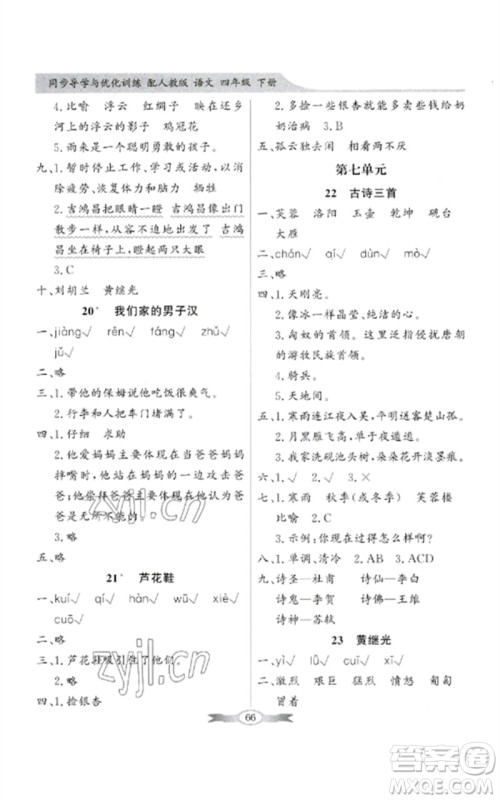 同步导学与优化训练 配人教版 语文 四年级 下册
4.比喻 浮云 红绸子 映在岸边
河上的浮云的影子 鸡冠花
5.雨来是一个聪明勇敢的、有爱国心
的孩子。
九、1.暂时停止工作、学习或活动,以消
除疲劳、恢复体力和脑力 牺牲
2.吉鸿昌把眼睛一瞪 吉鸿昌像出门
散步一样,从容不迫地走到刑场 吉鸿
昌坐在椅子上,面不改色地大声说
3.C
十、刘胡兰 黄继光
20* 我们家的男子汉
一、jiàng√ rěn√ fáng√ zhǔ√
jǔ√
二、略
三、1.带他的保姆说他吃饭很爽气。
2.行李和人把车门堵满了。
四、1.仔细 求助
2.他爱妈妈主要体现在爸爸妈妈
拌嘴时,他总站在妈妈一边,
爸爸
五、略
21* 芦花鞋
一、kuī√ qí√ hán√ wū√ xiè√
cuō√
二、略
三、1.芦花鞋吸引住了他们。
2.略
四、1.捡银杏
2.多捡一些银杏卖些钱给奶
奶治病 3.B
五、孤云独去闲 相看两不厌
第七单元
22 古诗三首
一、芙蓉 洛阳 玉壶 乾坤 砚台
大雁
二、chán√ qǐ√ dùn√ mò√
三、略
四、1.天刚亮。
2.像冰一样晶莹、纯洁的心。
3.匈奴的首领。匈奴是我国古代
的游牧民族。
4.骑兵。
5.天地间。
五、1.寒雨连江夜入吴、平明送客楚山孤。
2.月黑雁飞高,单于夜遁逃。
3.我家洗砚池头、朵朵花开淡墨痕。
六、1.√ 2.√ 3.×
七、1.寒雨 秋季(或冬季) 芙蓉楼
比喻 2.C
3.示例:你现在过得怎么样啊?
八、1.单调、清冷 2.AB 3.ACD
九、诗圣—杜甫 诗仙—李白
诗鬼—李贺 诗佛—王维
诗神—苏轼
23 黄继光
一、yì√ lǚ√ dǎn√
二、激烈 艰巨 猛烈 愤怒 匍匐
冒着
zyjl.cn
zyjl.cn
66
作业精灵